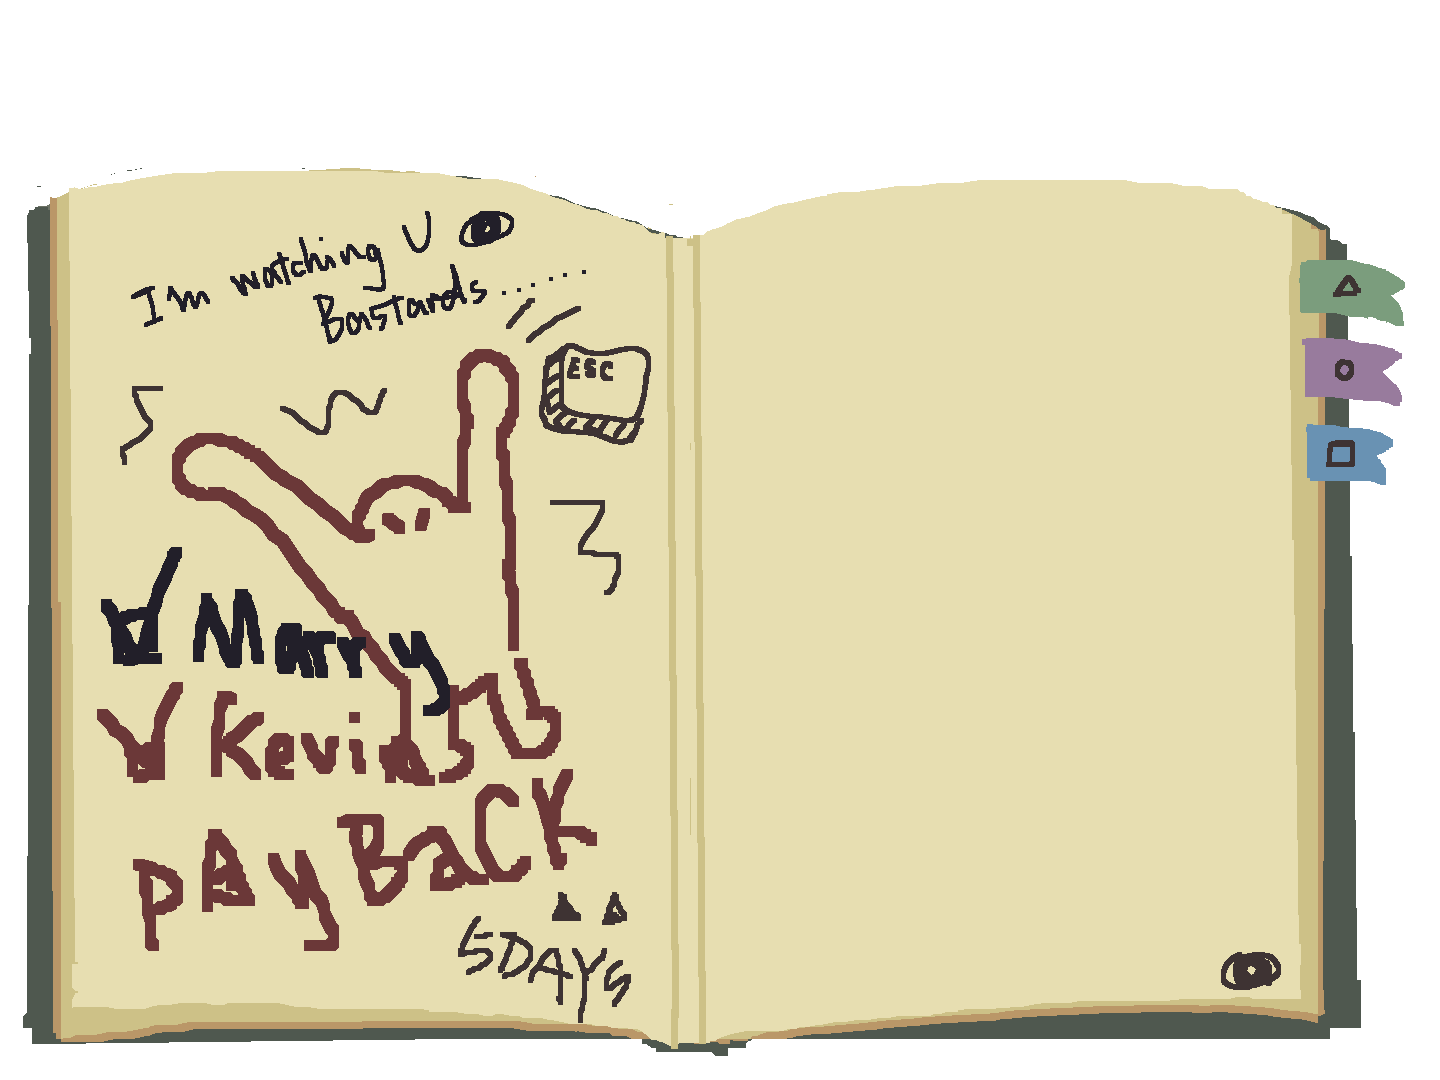 I'm watching U
Bastards..........
ESC
Marry
Kevins
PAyBaCK
5DAYS